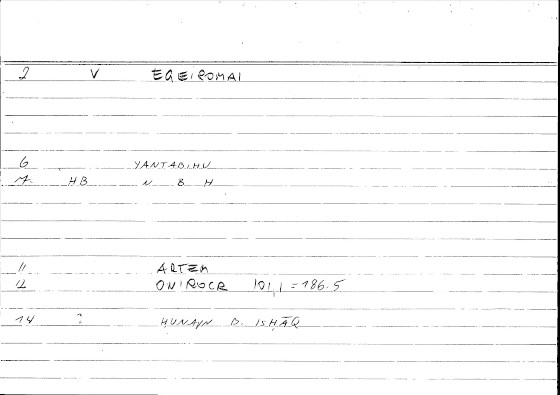 2 V EGEIROMAI
6 YANTABIHU
7 HB N B H
11 ARTEM
12 ONIROCR 101,1 = 186.5
14 ? HUNAYN B. ISHĀQ